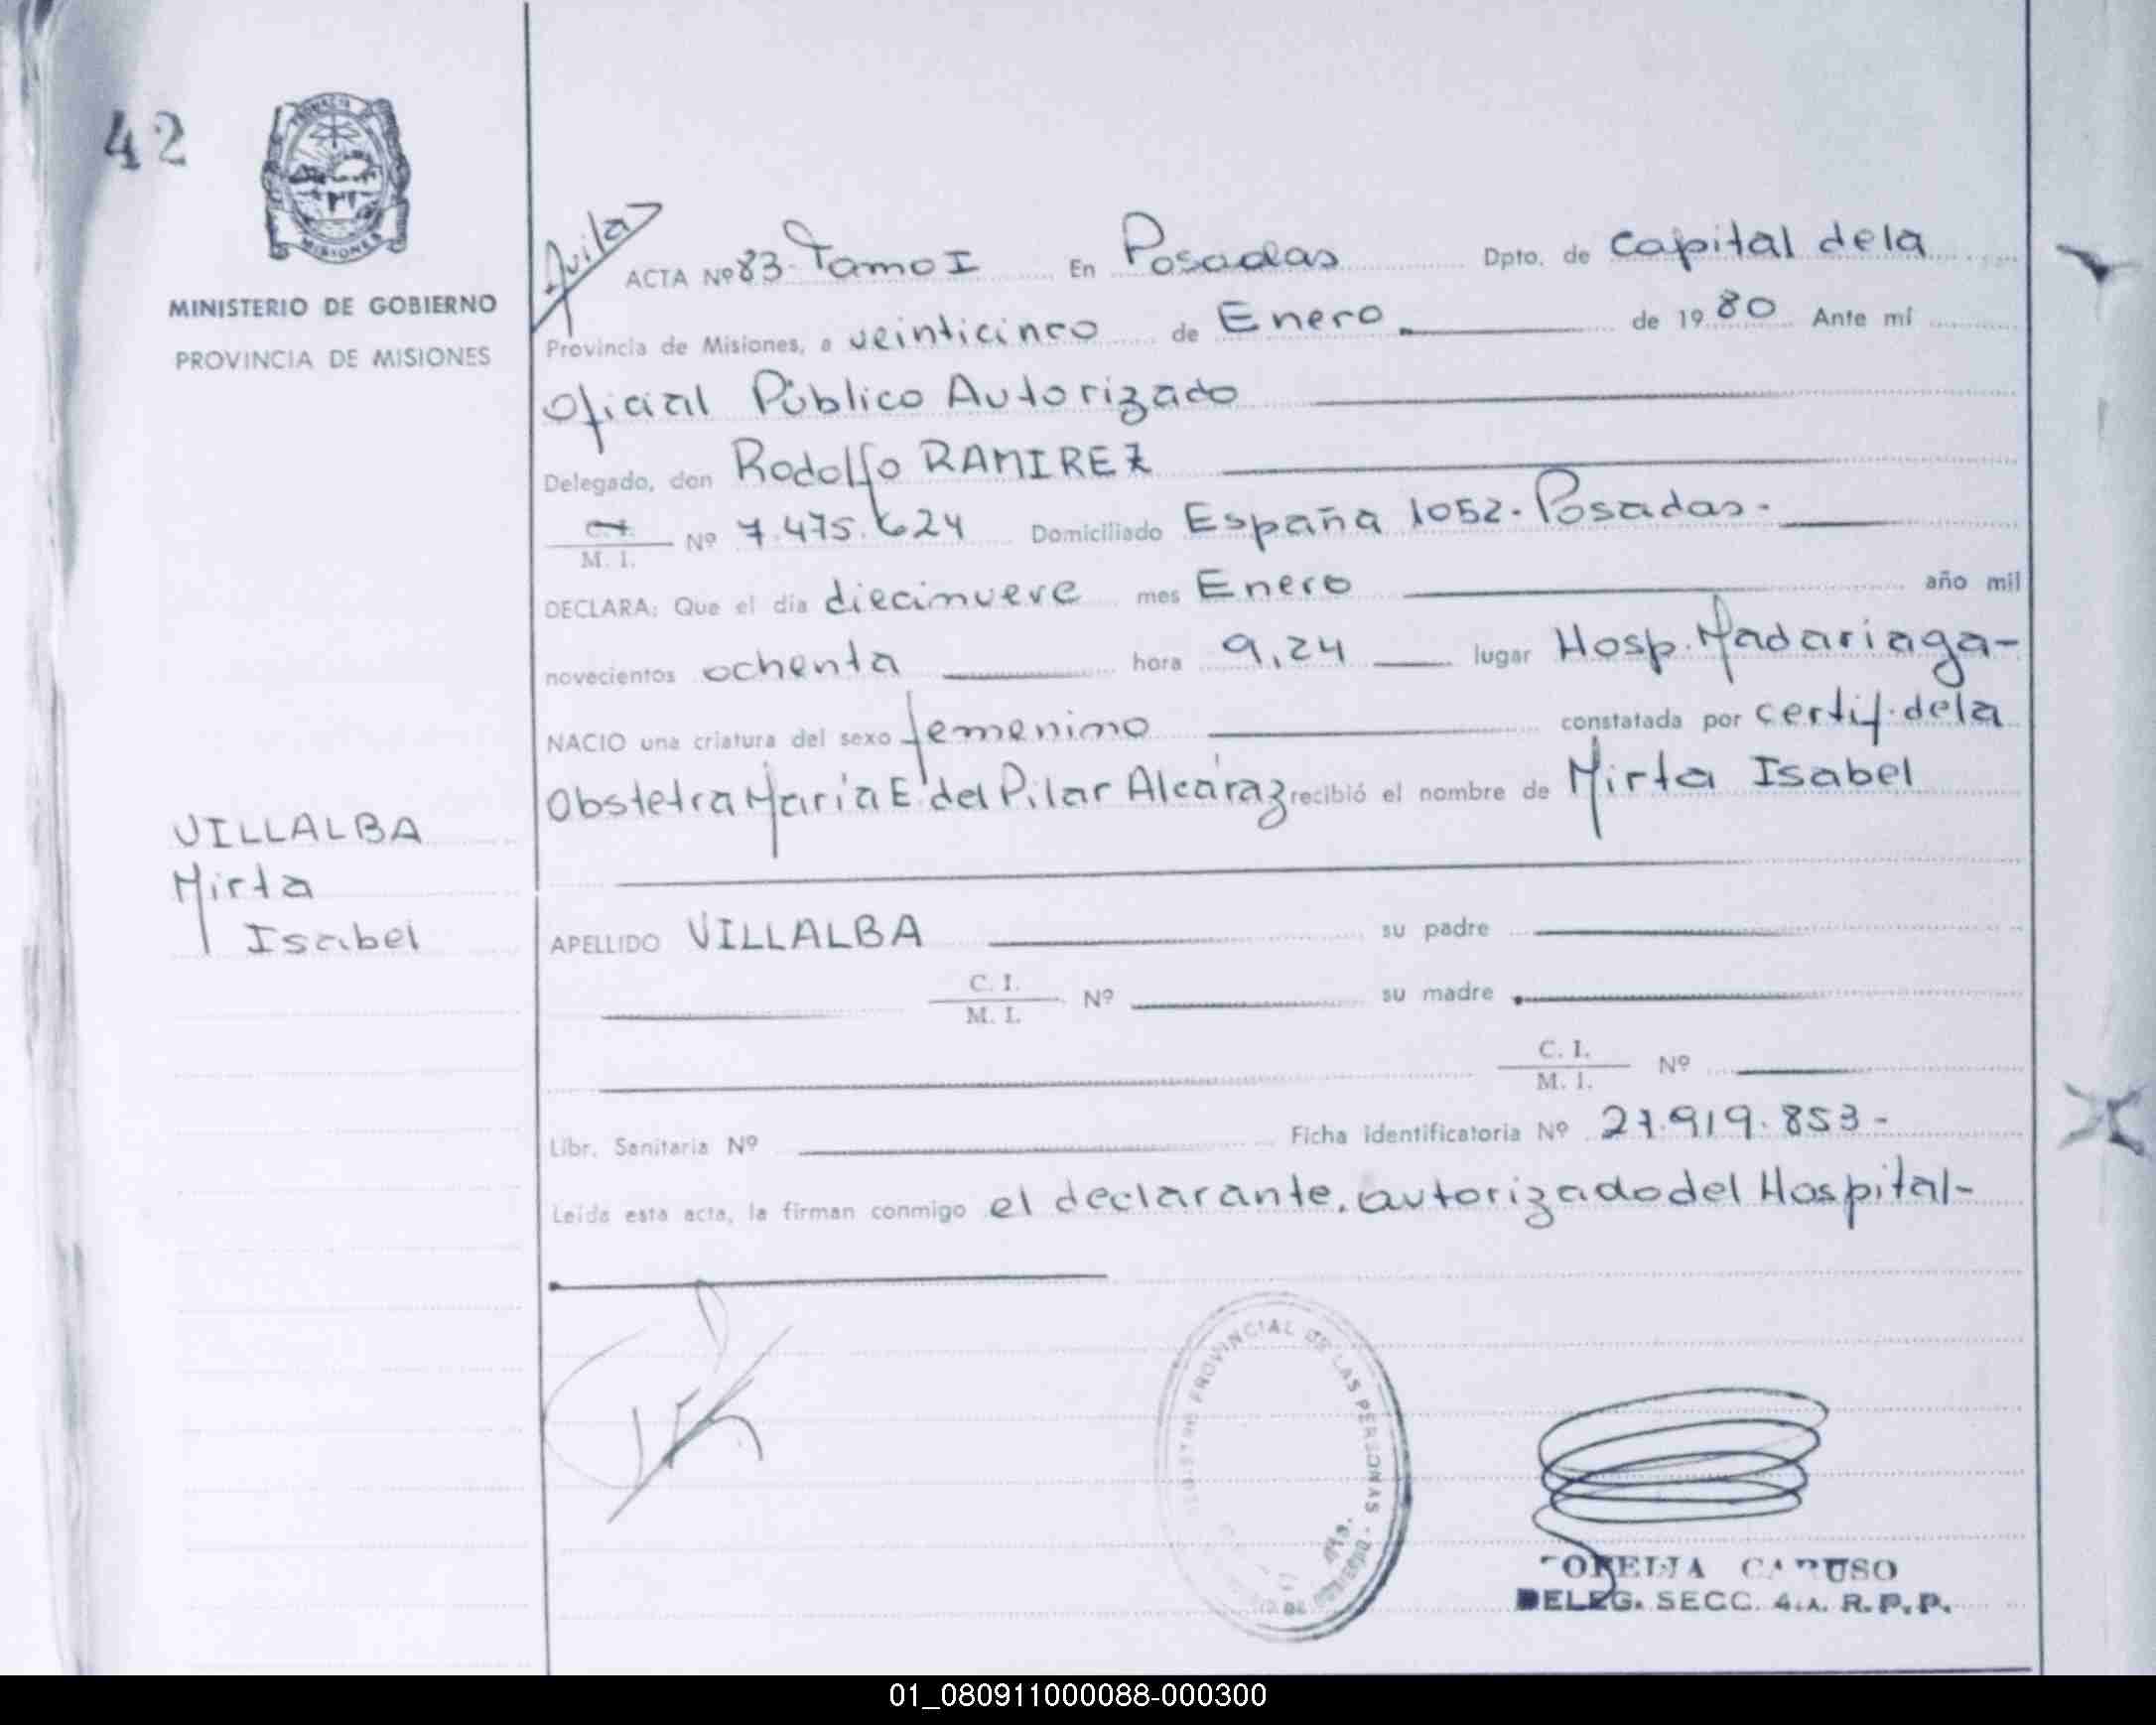 42
MISIONES
MINISTERIO DE GOBIERNO
PROVINCIA DE MISIONES
ACTA Nº 83 - Tomo I En Posadas Dpto. de Capital de la
Provincia de Misiones, a veinticinco de Enero de 1980 Ante mí
Oficial Público Autorizado
Delegado, don Rodolfo RAMIREZ
C.I. M. I. Nº 7.475.624 Domiciliado España 1052. Posadas.
DECLARA: Que el día diecinueve mes Enero año mil
novecientos ochenta hora 9,24 lugar Hosp. Madariaga-
NACIO una criatura del sexo femenino constatada por certif. de la
Obstetra María E. del Pilar Alcaraz recibió el nombre de Mirta Isabel
VILLALBA
Mirta
Isabel
APELLIDO VILLALBA su padre
C. I. M. I. Nº su madre
C. I. M. I. Nº
Libr. Sanitaria Nº Ficha identificatoria Nº 27.919.853-
Leída esta acta, la firman conmigo el declarante, autorizado del Hospital-
PROVINCIAL DE LAS PERSONAS
CARUSO
DELEG. SECC. 4.A. R.P.P.
01_080911000088-000300